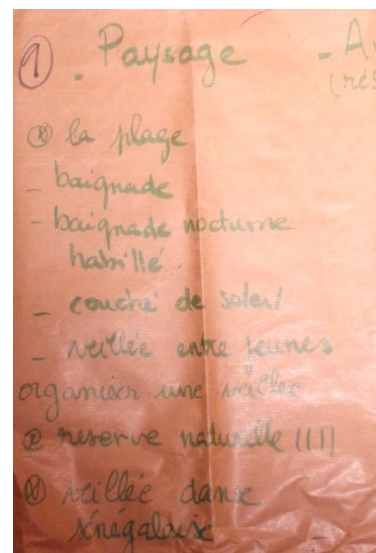 ① - Paysage - A
(rés
⊗ la plage
- baignade
- baignade nocturne
habillé.
- couché de soleil
- veillée entre jeunes
organiser une veillée
⊗ reserve naturelle (III)
⊗ veillée danse
sénégalaise